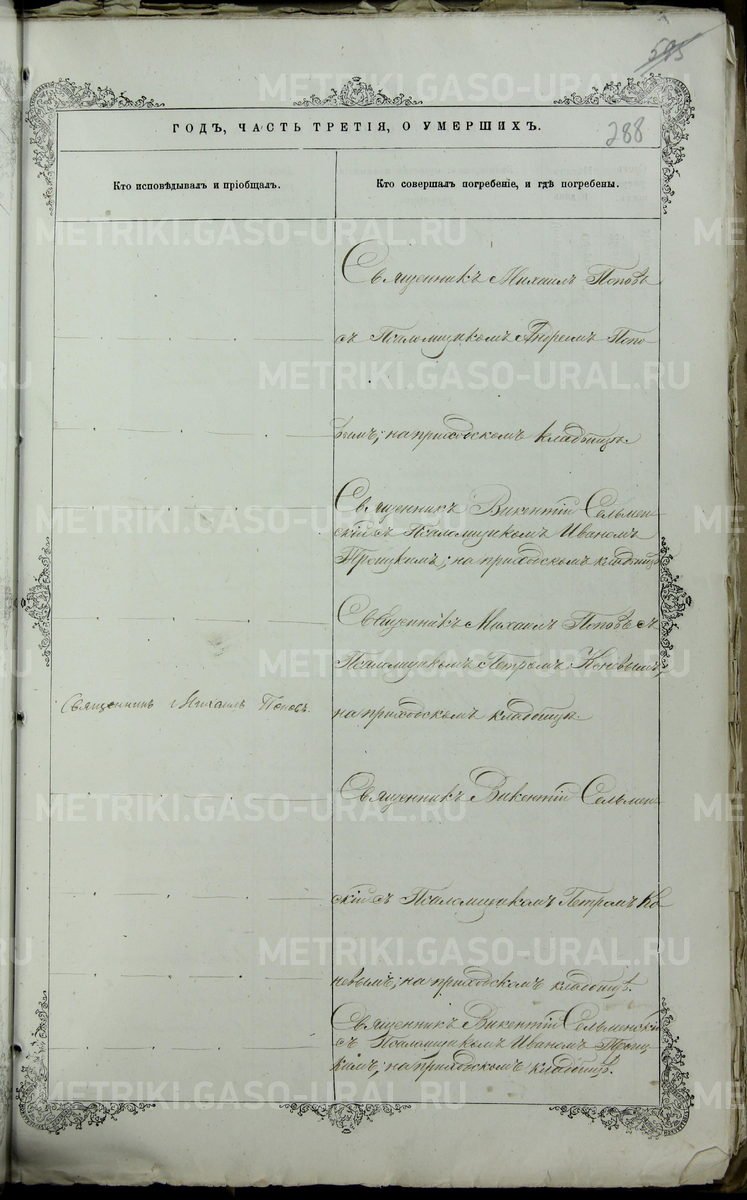 595
ГОДЪ, ЧАСТЬ ТРЕТІЯ, О УМЕРШИХЪ.
288
Кто исповѣдывалъ и пріобщалъ.
Кто совершалъ погребеніе, и гдѣ погребены.
Священникъ Михаилъ Поповъ
съ Псаломщикомъ Андреемъ Попо
вымъ; на приходскомъ кладбищѣ.
Священникъ Викентій Сельмен
скій съ Псаломщикомъ Иваномъ
Троицкимъ; на приходскомъ кладбищѣ
Священникъ Михаилъ Поповъ съ
Псаломщикомъ Петромъ Коневымъ;
на приходскомъ кладбищѣ.
Священникъ Михаилъ Поповъ.
Священникъ Викентій Сельмен
скій съ Псаломщикомъ Петромъ Ко
невымъ; на приходскомъ кладбищѣ.
Священникъ Викентій Сельменскій
съ Псаломщикомъ Иваномъ Троиц
кимъ; на приходскомъ кладбищѣ.
METRIKI.GASO-URAL.RU